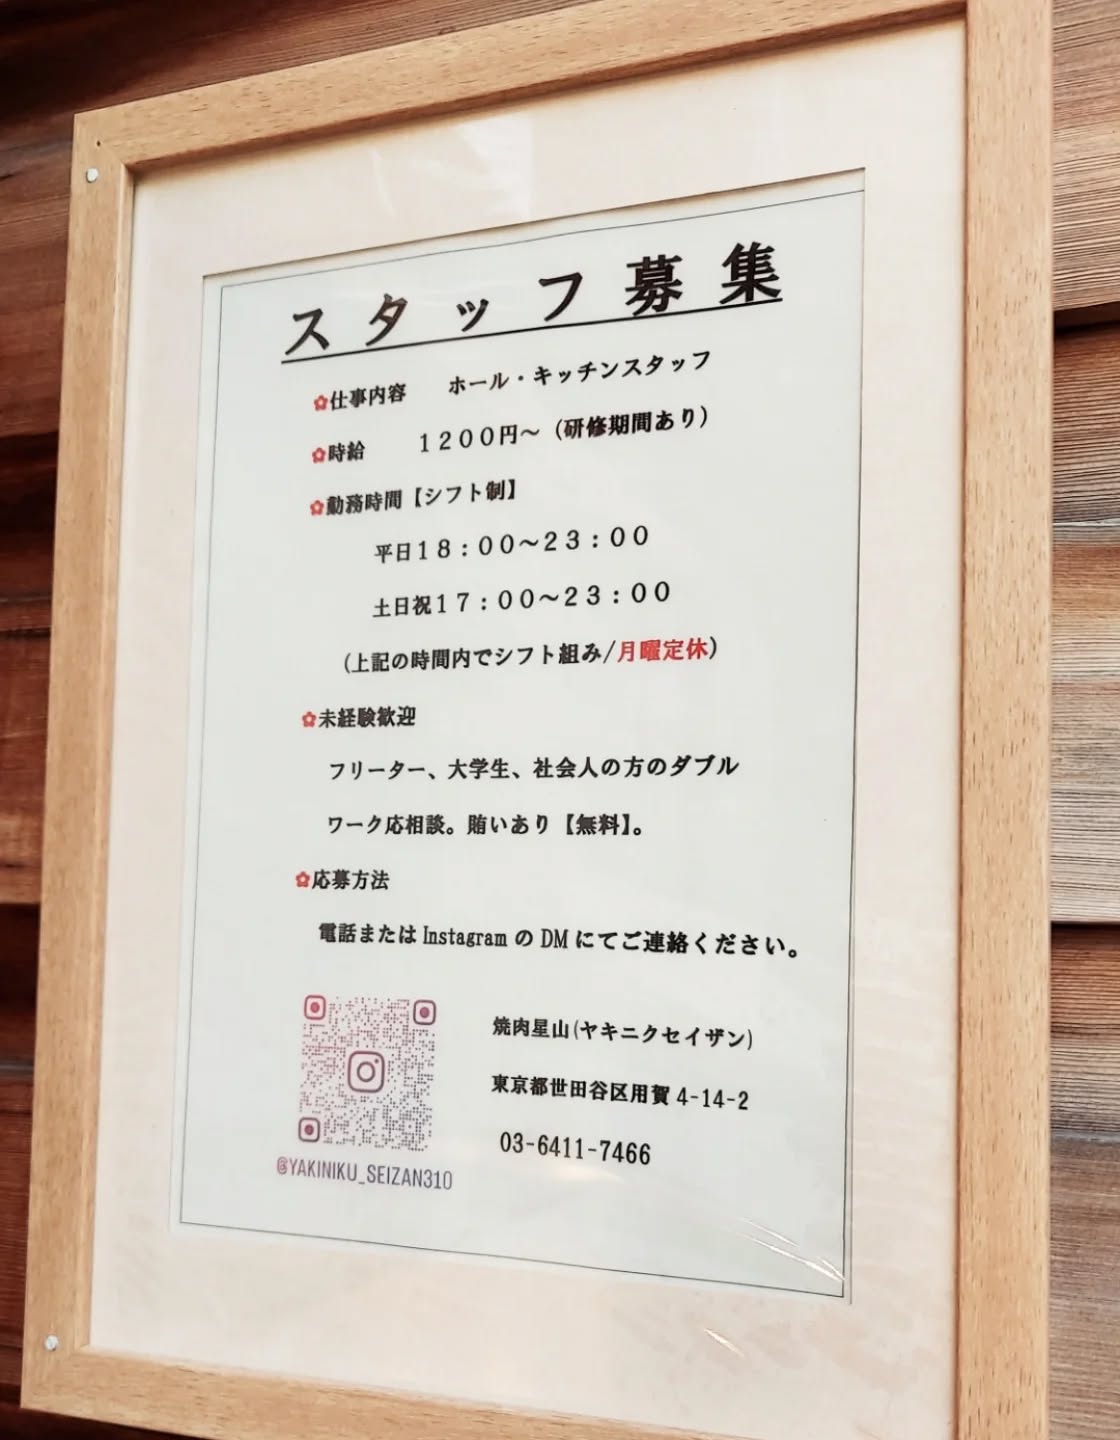 スタッフ募集
✿仕事内容　ホール・キッチンスタッフ
✿時給　１２００円～（研修期間あり）
✿勤務時間【シフト制】
平日１８：００～２３：００
土日祝１７：００～２３：００
（上記の時間内でシフト組み/月曜定休）
✿未経験歓迎
フリーター、大学生、社会人の方のダブル
ワーク応相談。賄いあり【無料】。
✿応募方法
電話または Instagram の DM にてご連絡ください。
焼肉星山(ヤキニクセイザン)
東京都世田谷区用賀 4-14-2
03-6411-7466
@YAKINIKU_SEIZAN310